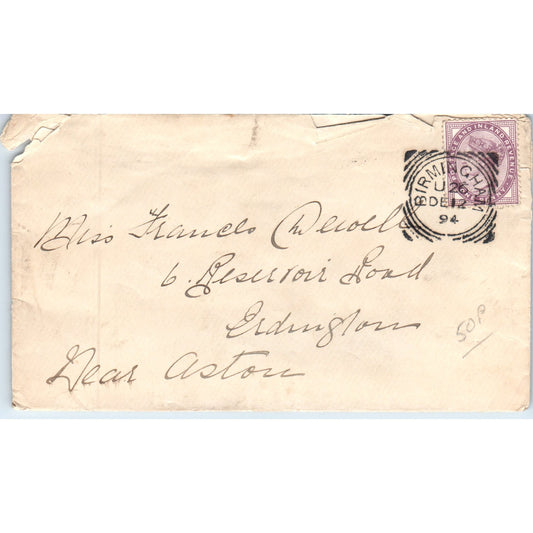 AND INLAND REVENUE
BIRMINGHAM
U 26
DE 12
94
Miss Frances
6. Reservoir Road
Erdington
Near Aston
50P